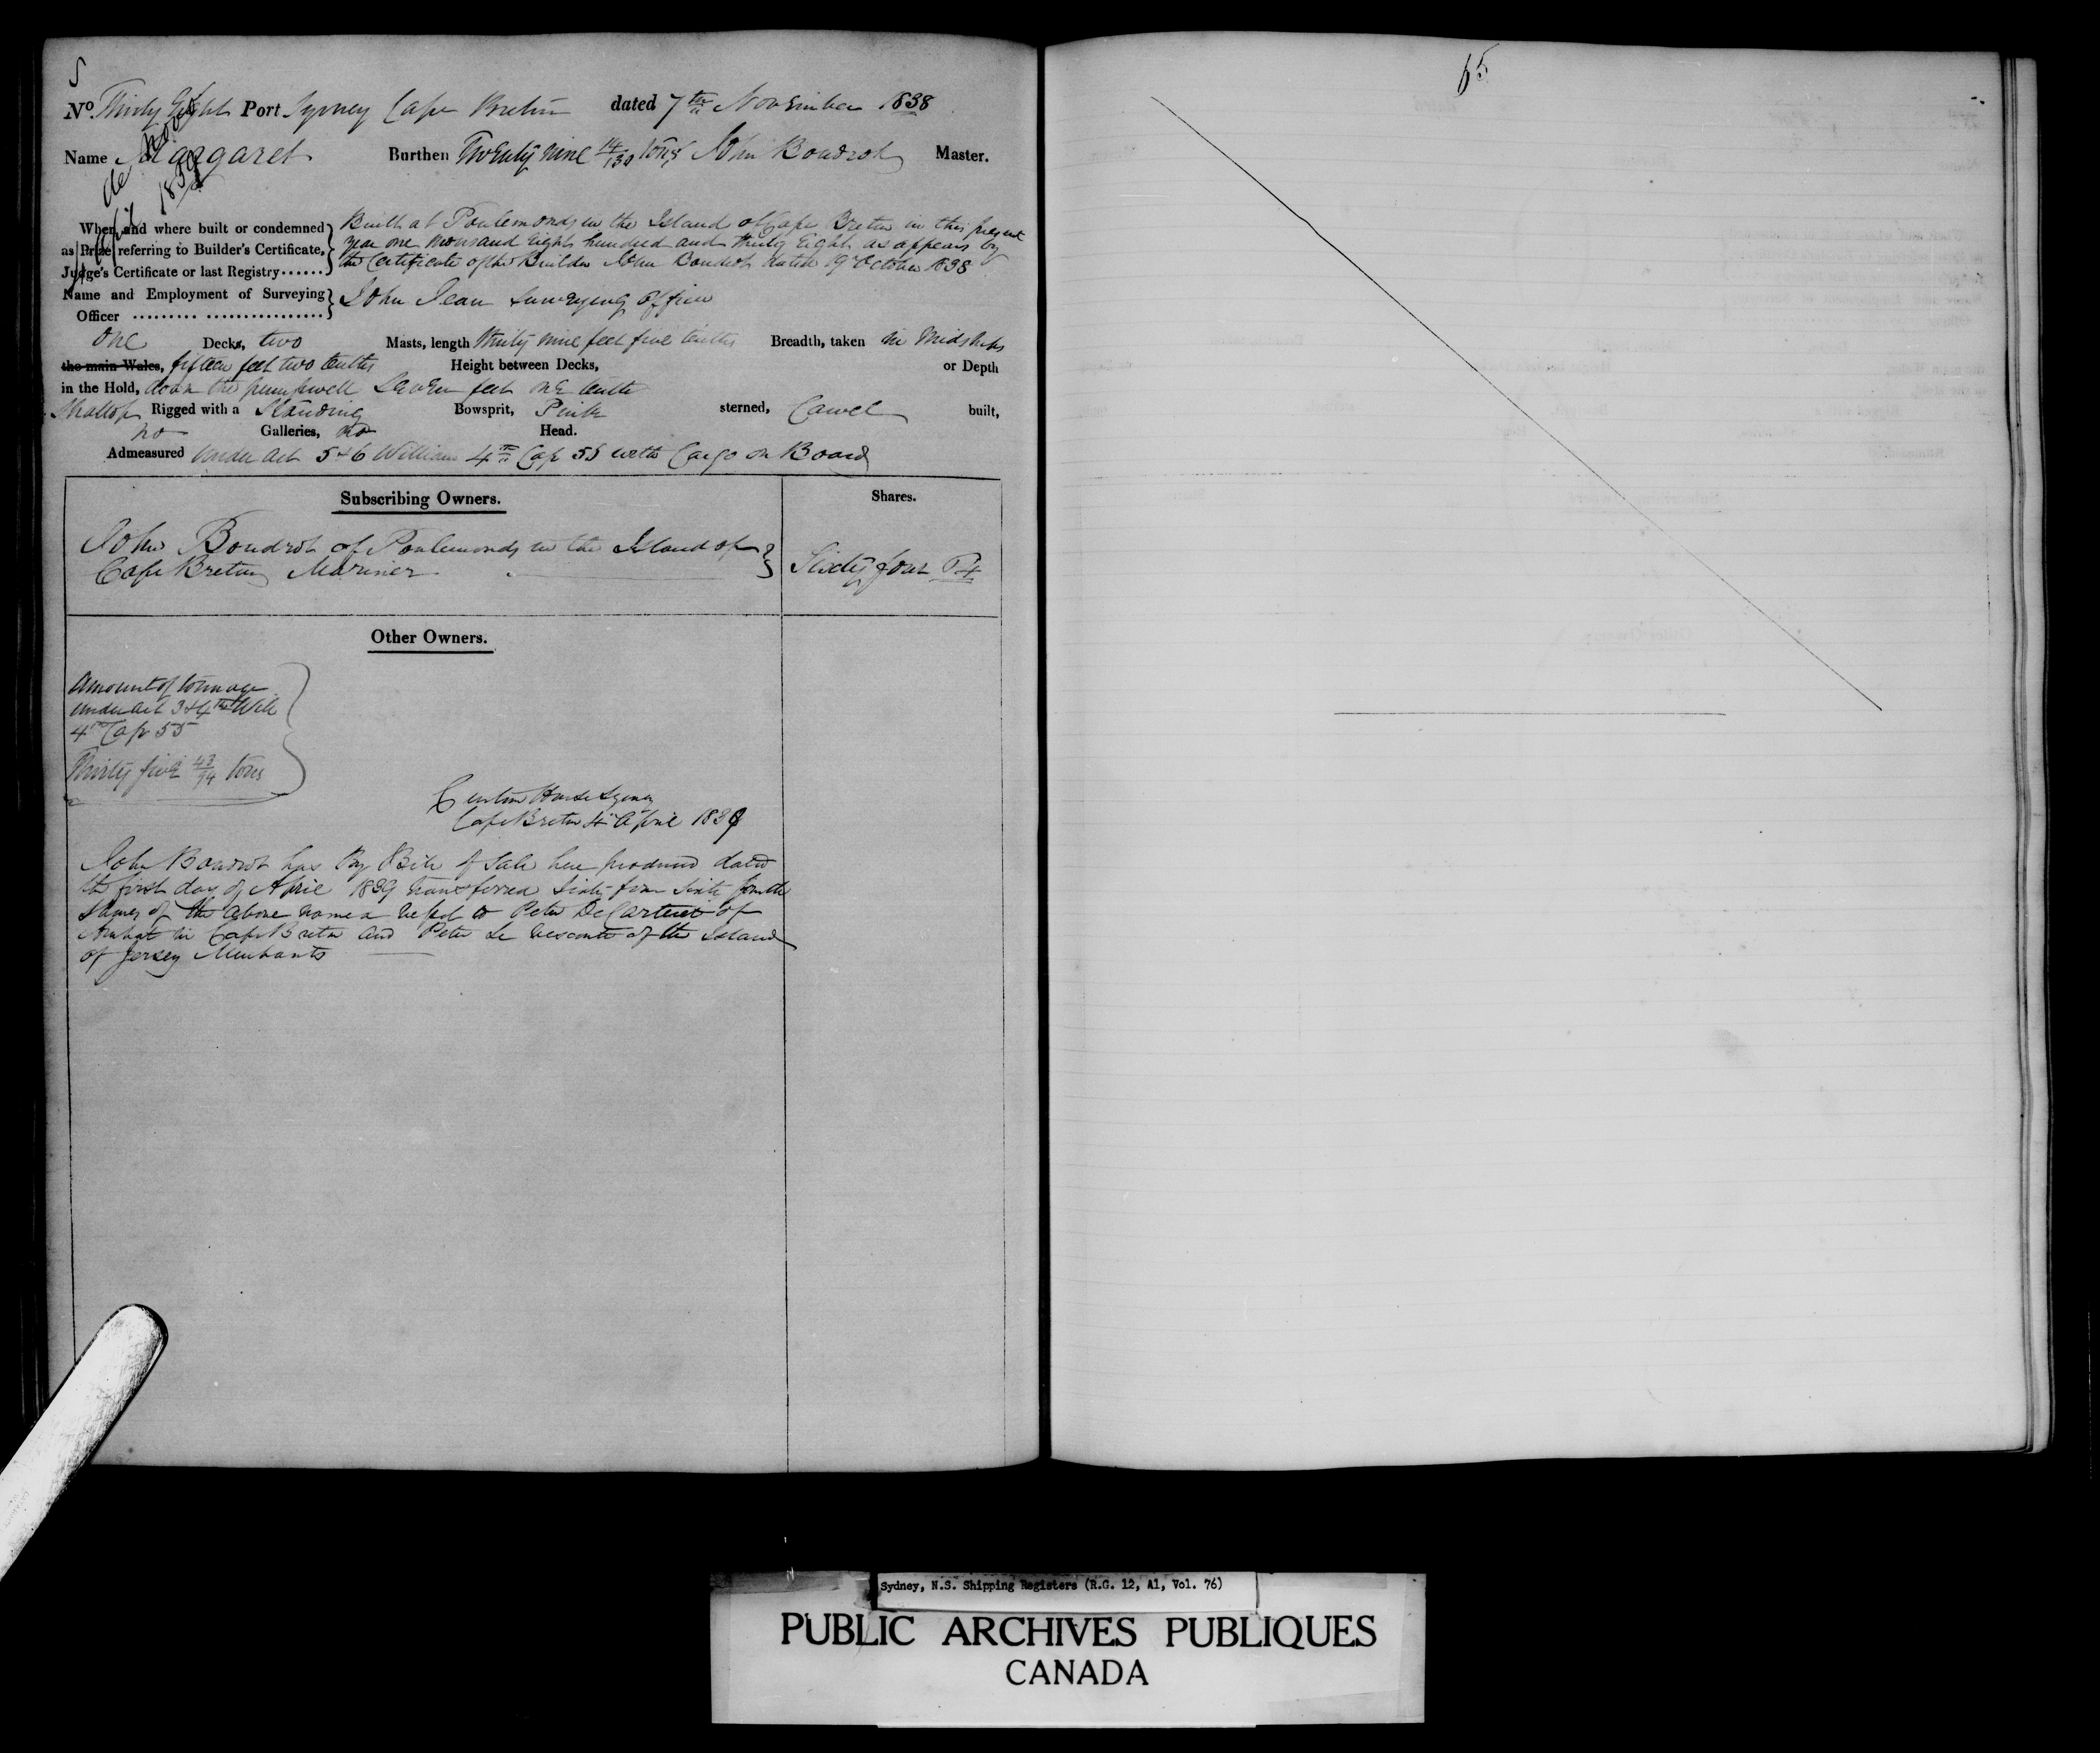 No. Thirty Eight Port Sydney Cape Breton dated 7th November 1838
Name Margaret Burthen Twenty nine 14/130 tons John Boudrot Master.
de novo
1839
When and where built or condemned Built at Poulemonds in the Island of Cape Breton in this present
as Prize referring to Builder's Certificate, year one thousand Eight hundred and thirty Eight as appears by
Judge's Certificate or last Registry...... the Certificate of the Builder John Boudrot dated 19 October 1838
Name and Employment of Surveying John Jean Surveying Officer
Officer ......... ................
One Decks, two Masts, length thirty nine feet five tenths Breadth, taken in Midships
the main Wales, fifteen feet two tenths Height between Decks, or Depth
in the Hold, down the pumpwell Seven feet one tenth
Shallop Rigged with a Standing Bowsprit, Pink sterned, Carvel built,
no Galleries, no Head.
Admeasured under Act 5 & 6 William 4th Cap 55 with Cargo on Board
Subscribing Owners. Shares.
John Boudrot of Poulemonds in the Island of
Cape Breton Mariner Sixty four 64
Other Owners.
Amount of tonnage
under Act 3 & 4th Will
4th Cap 55
Thirty five 43/94 tons
Custom House Sydney
Cape Breton 4th April 1839
John Boudrot has By Bill of Sale here produced dated
the first day of April 1839 transferred Sixty four Sixty fourth
Shares of the above named vessel to Peter DeCarteret of
Arichat in Cape Breton and Peter Le Vesconte of the Island
of Jersey Merchants
65
Sydney, N.S. Shipping Registers (R.G. 12, A1, Vol. 76)
PUBLIC ARCHIVES PUBLIQUES
CANADA